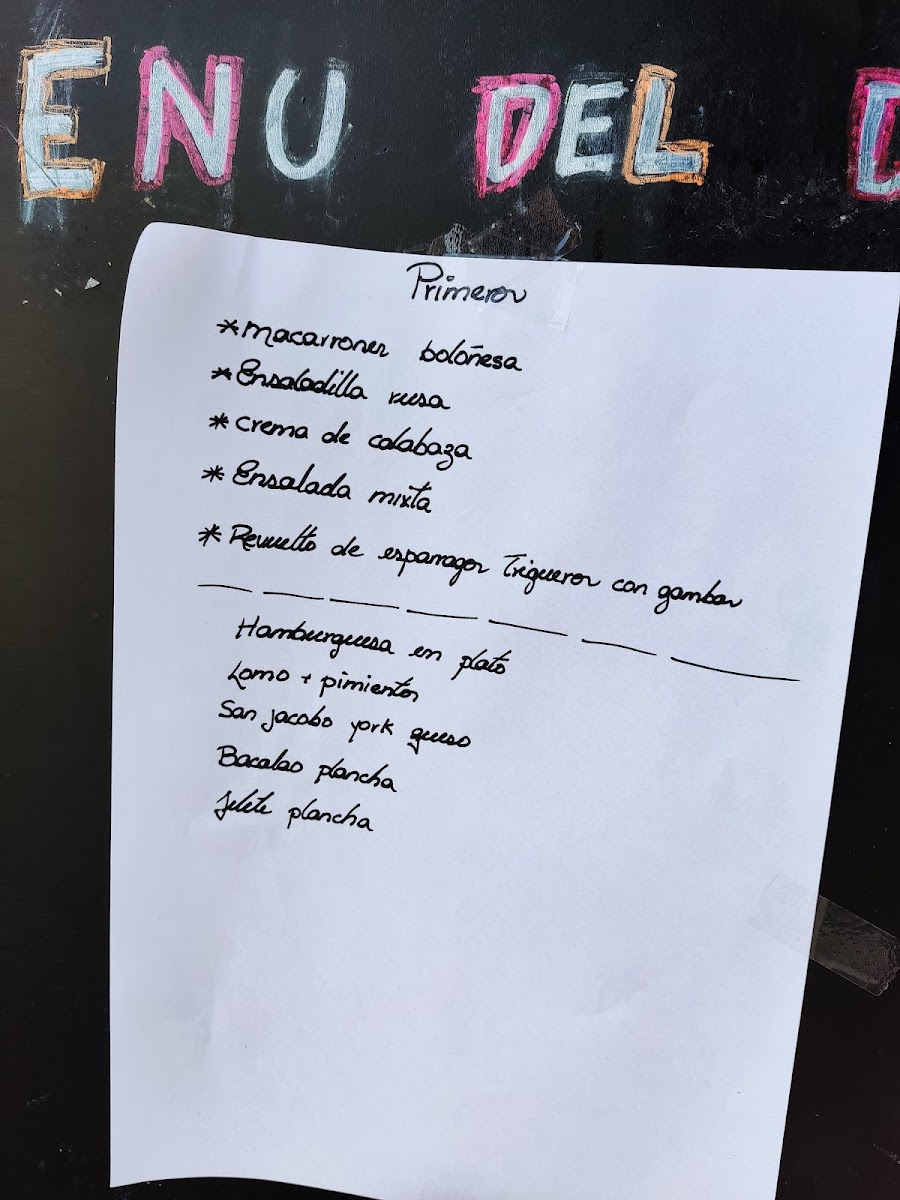 ENU DEL D
Primeros
* Macarrones boloñesa
* Ensaladilla rusa
* Crema de calabaza
* Ensalada mixta
* Revuelto de esparragos Trigueros con gambas
Hamburguesa en plato
Lomo + pimientos
San jacobo york queso
Bacalao plancha
Filete plancha